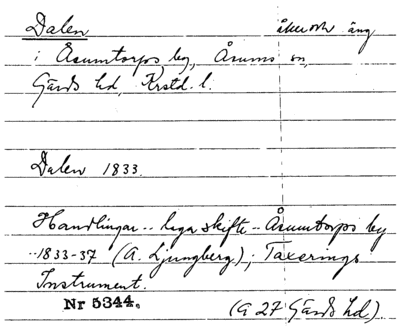 Dalen åker och äng
i Åsumtorps by, Åsums sn,
Gärds hd, Krstd. l.
Dalen 1833.
Handlingar .. laga skifte .. Åsumtorps by
.. 1833-37 (A. Ljungberg); Taxerings
Instrument.
Nr 5344. (G 27 Gärds hd).